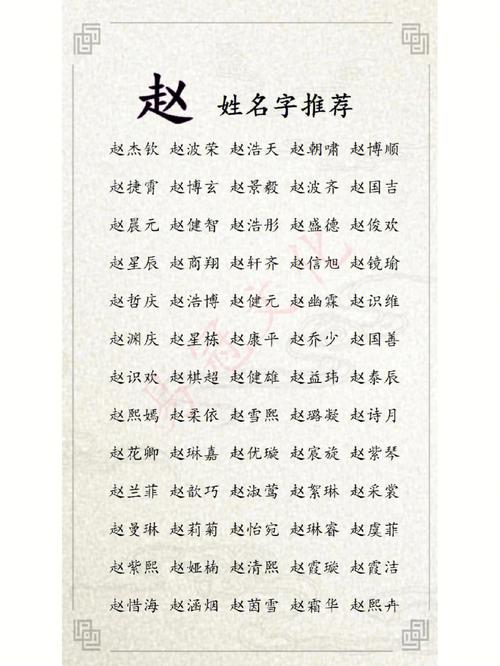 赵 姓名字推荐
赵杰钦 赵波荣 赵浩天 赵朝啸 赵博顺
赵捷霄 赵博玄 赵景毅 赵波齐 赵国吉
赵晨元 赵健智 赵浩彤 赵盛德 赵俊欢
赵星辰 赵商翔 赵轩齐 赵信旭 赵镜瑜
赵哲庆 赵浩博 赵健元 赵幽霖 赵识维
赵渊庆 赵星栋 赵康平 赵乔少 赵国善
赵识欢 赵棋超 赵健雄 赵益玮 赵泰辰
赵熙嫣 赵柔依 赵雪熙 赵璐凝 赵诗月
赵花卿 赵琳嘉 赵优璇 赵宸旋 赵紫琴
赵兰菲 赵歆巧 赵淑莺 赵絮琳 赵采裳
赵曼琳 赵莉菊 赵怡宛 赵琳睿 赵虞菲
赵紫熙 赵娅楠 赵清熙 赵霞璇 赵霞洁
赵惜海 赵涵烟 赵茵雪 赵霜华 赵熙卉